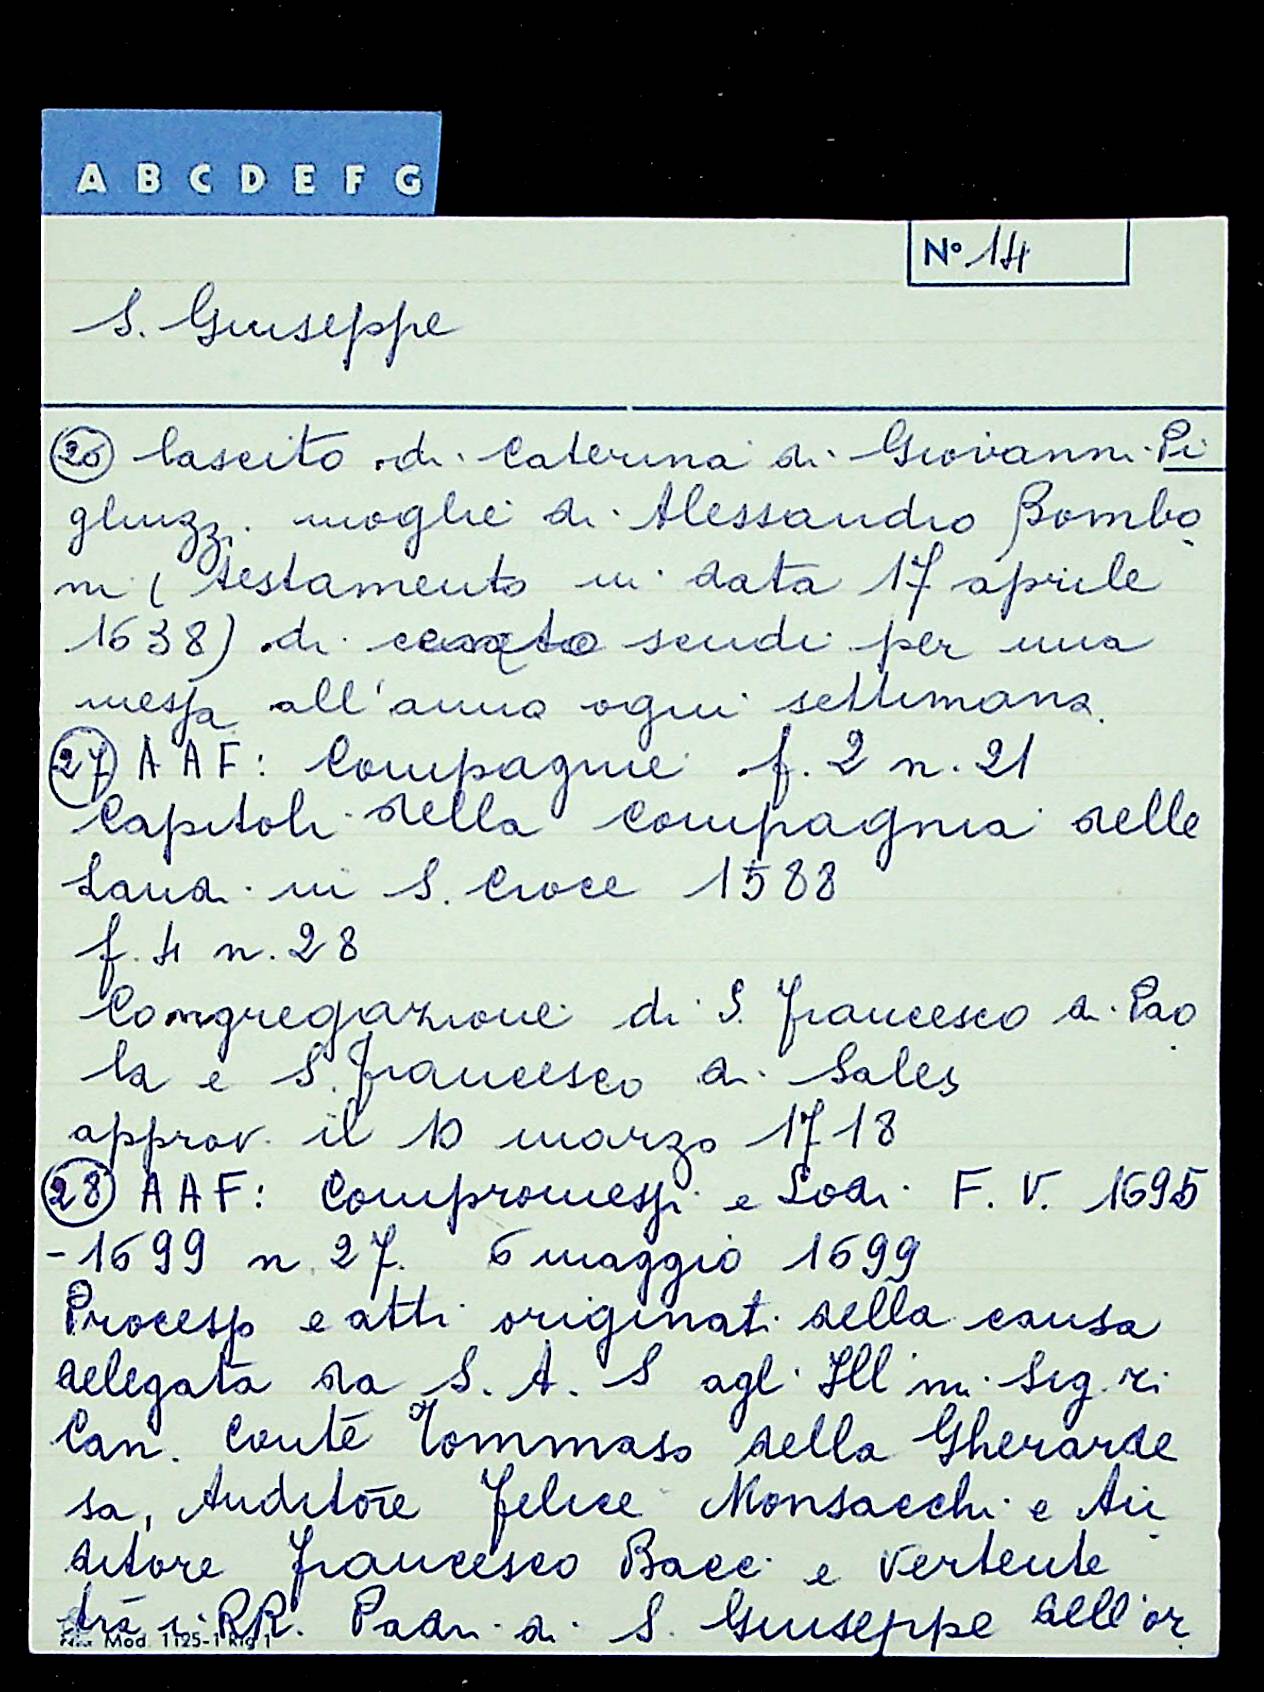 A B C D E F G
N° 14
S. Giuseppe
26 lascito di Caterina di Giovanni Pi
gliuzzi moglie di Alessandro Bombo
ni (testamento in data 17 aprile
1638) di cento scudi per una
messa all'anno ogni settimana.
27 AAF: Compagnie f. 2 n. 21
Capitoli della compagnia delle
Laudi in S. Croce 1588
f. 4 n. 28
Congregazione di S. Francesco di Pao
la e S. Francesco di Sales
approv. il 10 marzo 1718
28 AAF: Compromessi e Lodi F. V. 1695
-1699 n. 27. 6 maggio 1699
Processo e atti originati della causa
delegata da S. A. S agl' Ill'mi Sig.ri
Can. Conte Tommaso della Gherarde
sa, Auditore Felice Monsacchi e Au
ditore Francesco Bacci e vertente
tra i RR. Padri di S. Giuseppe dell'or
Mod. 1125-1 Rig 1